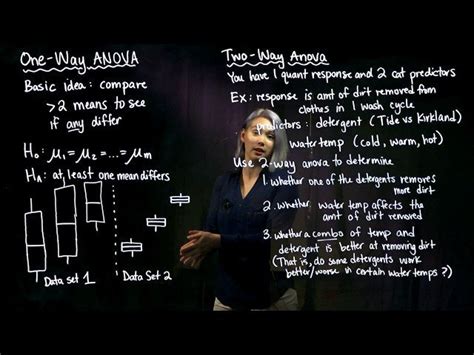 One-Way ANOVA
Basic idea: compare
>2 means to see
if any differ
H₀: μ₁=μ₂=...=μm
Hₐ: at least one mean differs
Data set 1
Data Set 2
Two-Way Anova
You have 1 quant response and 2 cat predictors
Ex: response is amt of dirt removed from
clothes in 1 wash cycle
predictors: detergent (Tide vs Kirkland)
water temp (cold, warm, hot)
Use 2-way anova to determine
1. whether one of the detergents removes
more dirt
2. whether water temp affects the
amt of dirt removed
3. whether a combo of temp and
detergent is better at removing dirt
(That is, do some detergents work
better/worse in certain water temps?)